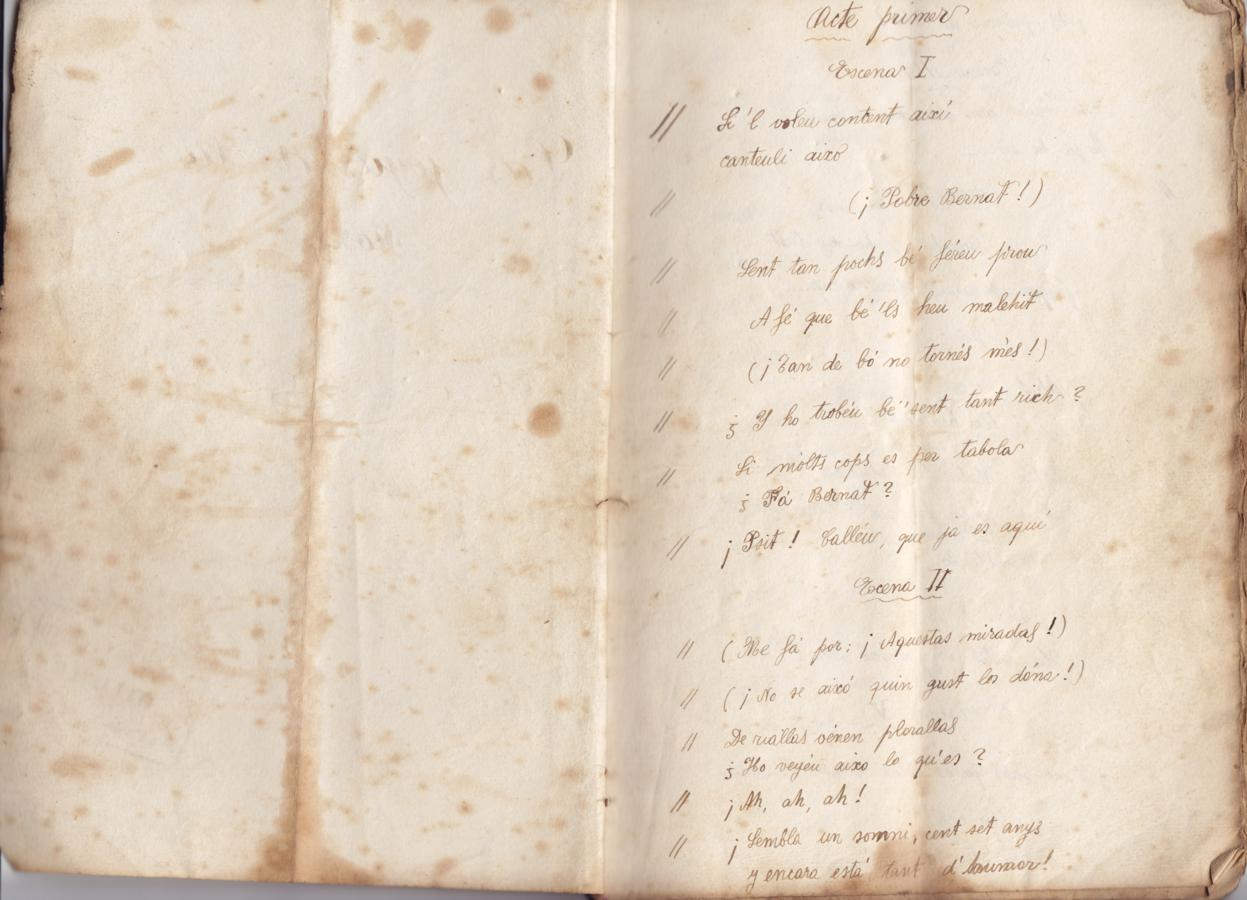 Acte primer
Escena I
// Si 'l voleu content així
canteuli aixo
// (¡ Pobre Bernat ! )
// Sent tan pochs bé féreu prou
// A fé que bé 'ls heu malehit
// (¡ Tan de bó no tornés mès ! )
// ¿ Y ho trobéu bé 'sent tant rich ?
// Si mòlts cops es per tabola
¿ Fá Bernat ?
// ¡ Psit ! Calléu, que ja es aquí
Escena II
// ( Me fá por : ¡ Aquestas miradas ! )
// ( ¡ No se aixó quin gust los dóna ! )
// De riallas vénen plorallas
¿ Ho veyéu aixo lo qu'es ?
// ¡ Ah, ah, ah !
// ¡ Sembla un somni, cent set anys
y encara está tant d'humor !